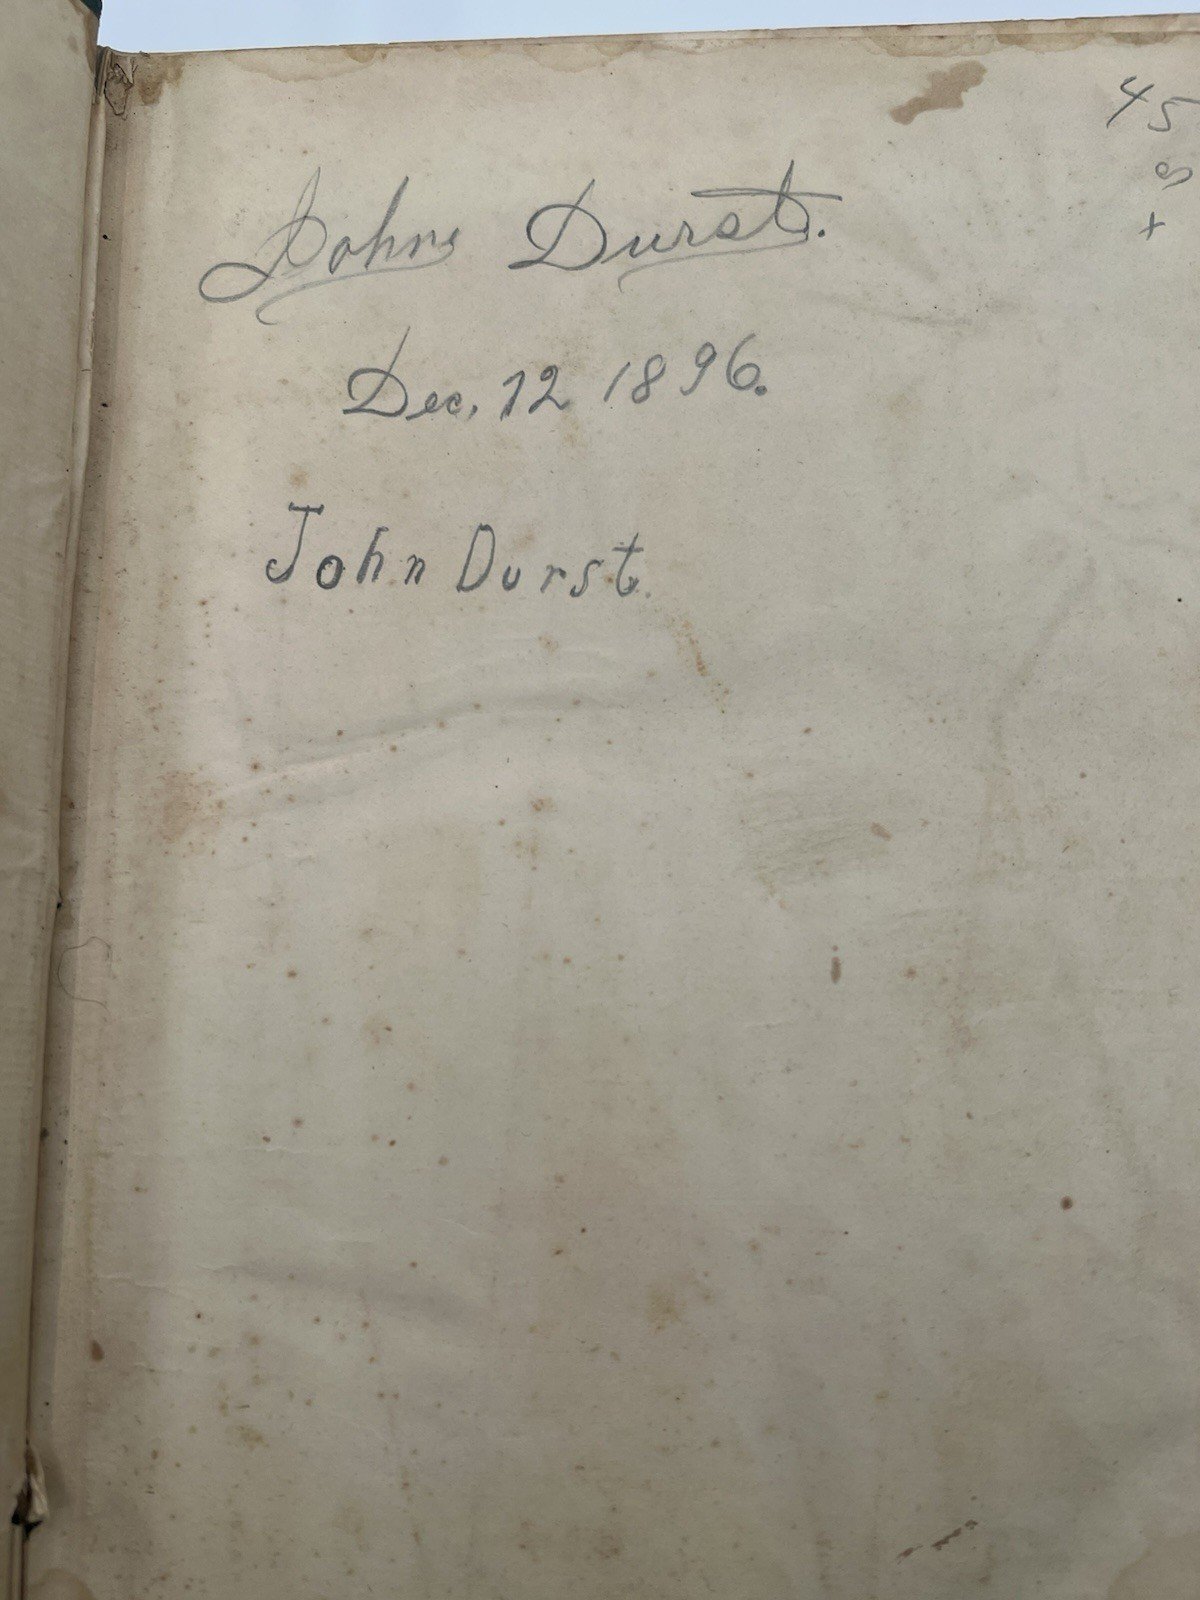 45
John Durst.
Dec. 12 1896.
John Durst.